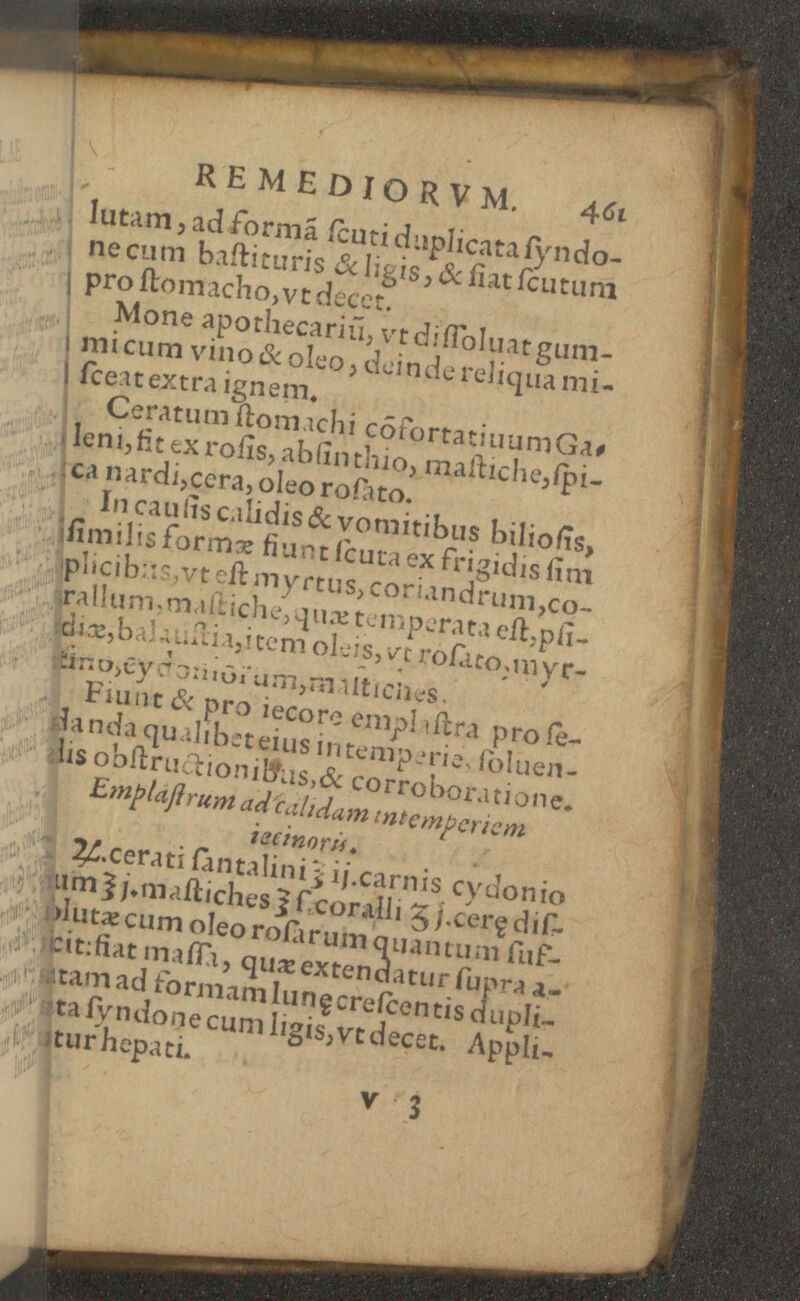 REMEDIORVM. 461
lutam, ad formã ſcuti duplicata ſyndo-
ne cum baſtituris & ligis, & fiat ſcutum
pro ſtomacho, vt decet.
Mone apothecariũ, vt diſſoluat gum-
mi cum vino & oleo, deinde reliqua mi-
ſceat extra ignem.
Ceratum ſtomachi cõfortatiuum Ga-
leni, fit ex roſis, abſinthio, maſtiche, ſpi-
ca nardi, cera, oleo roſato.
In cauſis calidis & vomitibus bilioſis,
ſimilis formæ fiunt ſcuta ex frigidis ſim
plicibus, vt eſt myrtus, coriandrum, co-
rallum, maſtiche, quæ temperata eſt, pſi-
diæ, balauſtia, item oleis, vt roſato, myr-
tino, cydoniorum, maſtiches.
Fiunt & pro iecore emplaſtra pro ſe-
danda qualibet eius intemperie, ſoluen-
dis obſtructionibus, & corroboratione.
Emplaſtrum ad calidam intemperiem
iecinoris.
℞. cerati ſantalini ℥ ij. carnis cydonio
rum ℥ j. maſtiches ʒ ſ. coralli ʒ j. cerę diſ-
ſolutæ cum oleo roſarum quantum ſuf-
ficit: fiat maſſa, quæ extendatur ſupra a-
lutam ad formam lunę creſcentis dupli-
cata ſyndone cum ligis, vt decet. Appli-
atur hepati.
V 3